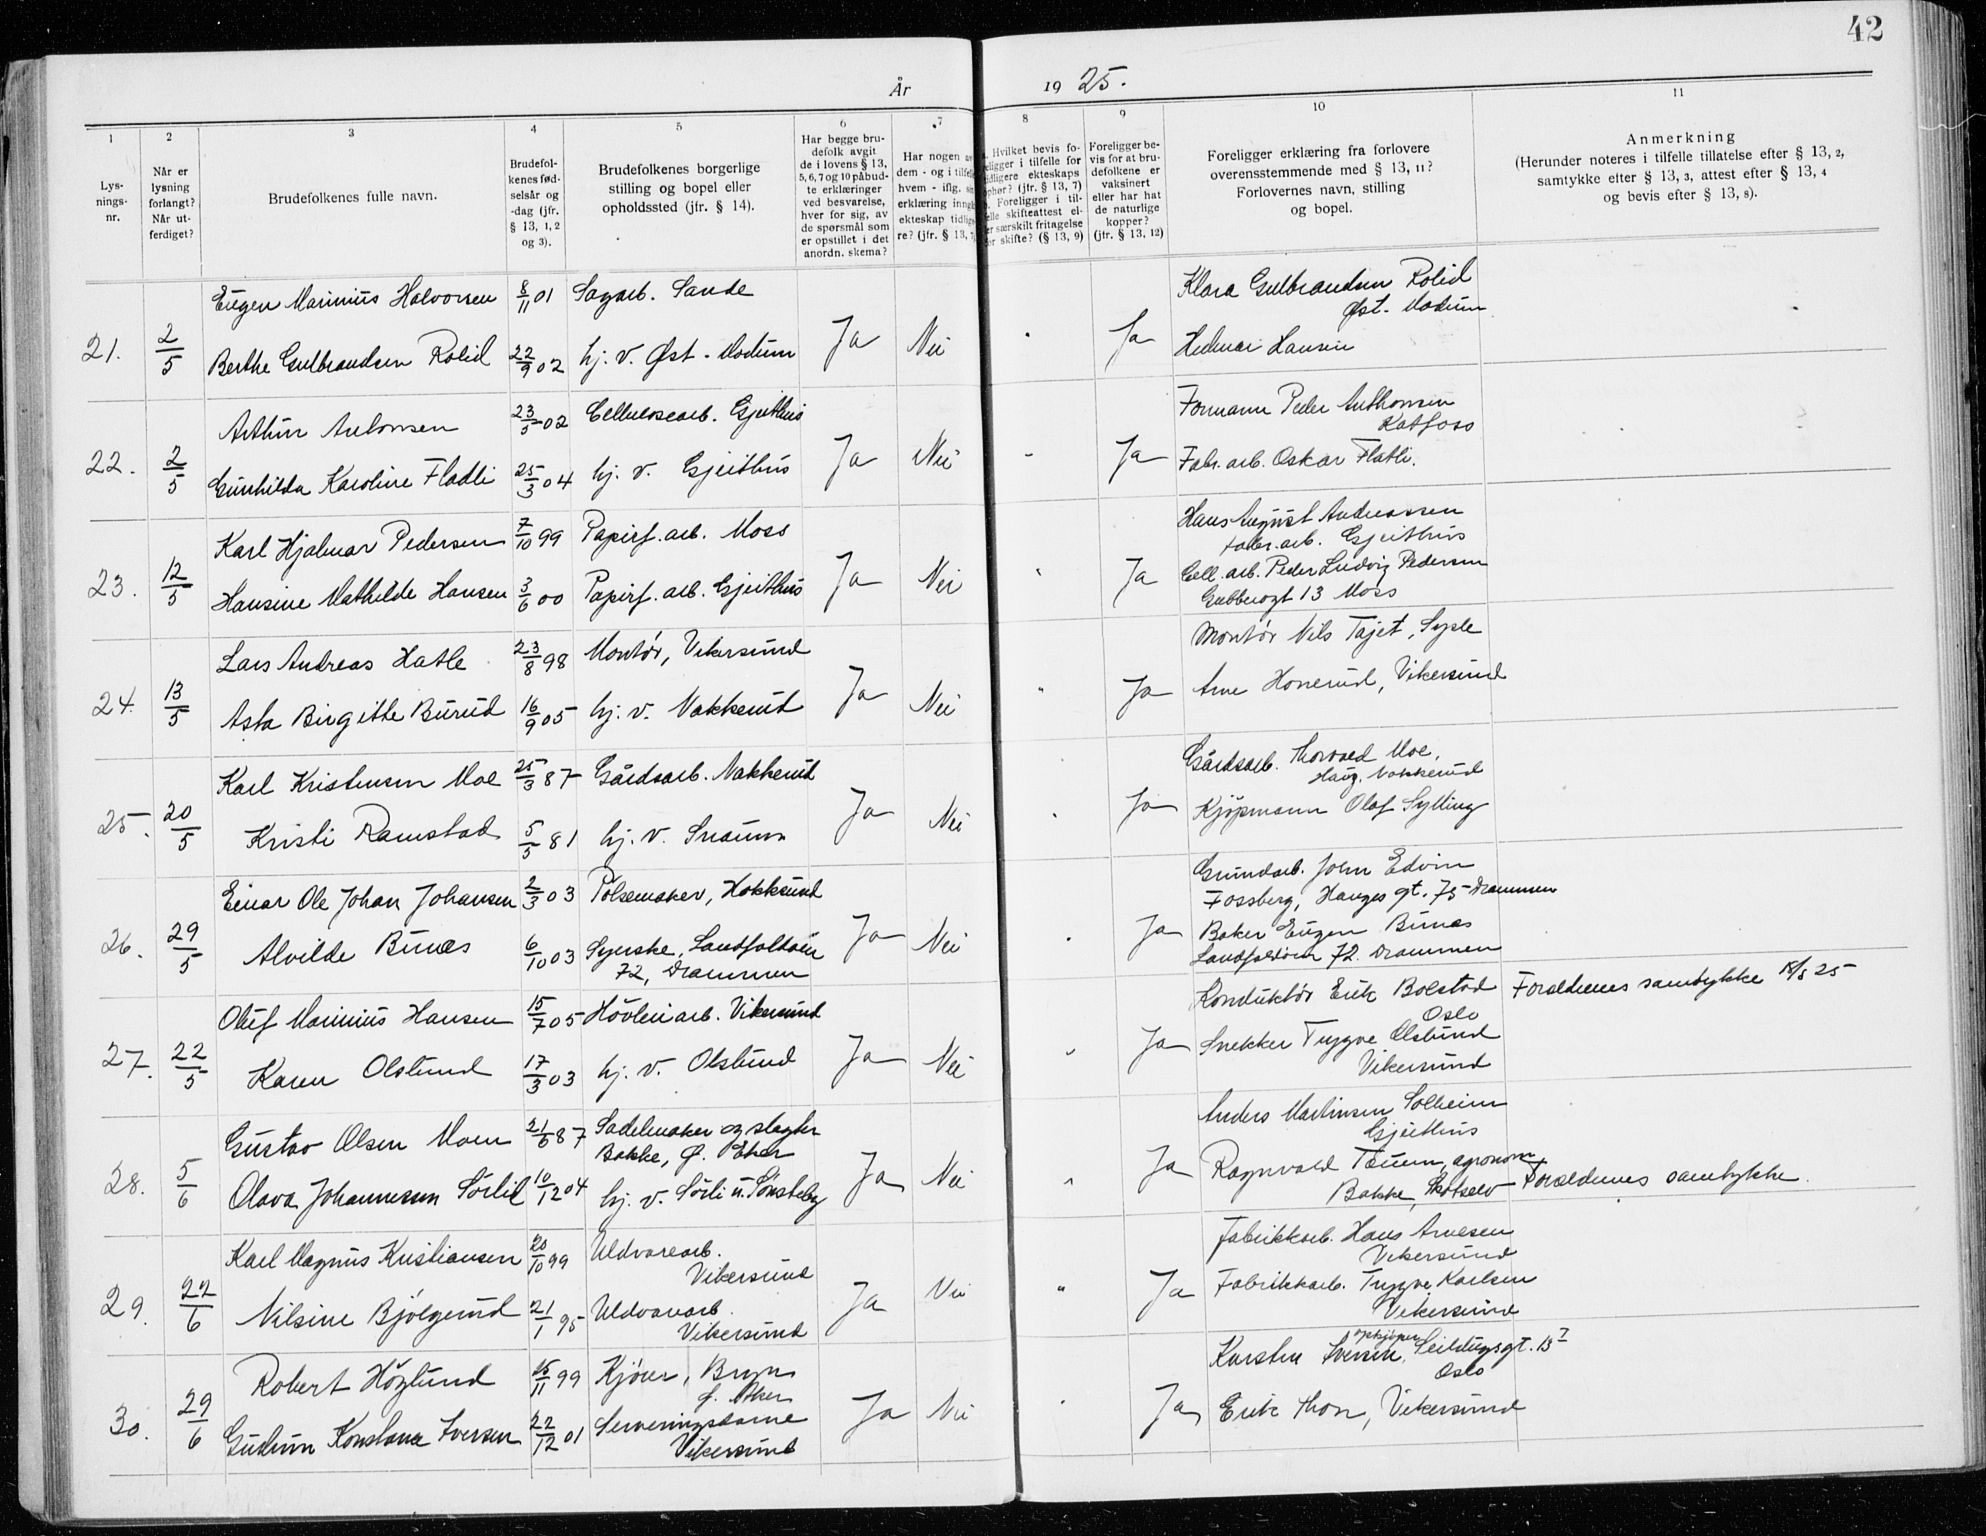 42
År 1925.
1 2 3 4 5 6 7 8 9 10 11
Lys-
nings-
nr.
Når er
lysning
forlangt?
Når ut-
ferdiget?
Brudefolkenes fulle navn.
Brudefol-
kenes fød-
selsår og
-dag (jfr.
§ 13, 1, 2
og 3).
Brudefolkenes borgerlige
stilling og bopel eller
opholdssted (jfr. § 14).
Har begge bru-
defolk avgit
de i lovens § 13,
5, 6, 7 og 10 påbud-
te erklæringer
ved besvarelse,
hver for sig, av
de spørsmål som
er opstillet i det
anordn. skema?
Har nogen av
dem - og i tilfelle
hvem - iflg. sin
erklæring inngått
ekteskap tidlige-
re? (jfr. § 13, 7
a. Hvilket bevis fo-
religger i tilfelle for
tidligere ekteskaps
ophør? (jfr. § 13, 7)
b. Foreligger i til-
felle skifteattest el-
ler særskilt fritagelse
for skifte? (§ 13, 9)
Foreligger be-
vis for at bru-
defolkene er
vaksinert
eller har hat
de naturlige
kopper?
(jfr. § 13, 12)
Foreligger erklæring fra forlovere
overensstemmende med § 13, 11?
Forlovernes navn, stilling
og bopel.
Anmerkning
(Herunder noteres i tilfelle tillatelse efter § 13, 2,
samtykke efter § 13, 3, attest efter § 13, 4
og bevis efter § 13, 8).
Eugen Marinius Halvorsen 8/11 01 Sagarb. Sande Klara Gulbrandsen Rolid
Øst. Modum
21. 2/5 Berthe Gulbrandsen Rolid 22/9 02 hj. v. Øst-Modum Ja Nei " Ja Hansen
Arthur Antonsen 23/5 02 Cellulosearb. Gjeithus Formann Peder Anthonsen
Katfoss
22. 2/5 Gunhilda Karoline Fladli 25/3 04 hj. v. Gjeithus Ja Nei " Ja Fabr. arb. Oskar Flatli.
Karl Hjalmar Pedersen 7/10 99 Papirf. arb. Moss Hans August Andreassen
fabr. arb. Gjeithus
23. 12/5 Hansine Mathilde Hansen 3/6 00 Papirf. arb. Gjeithus Ja Nei " Ja Cell. arb. Peder Ludvig Pedersen
13 Moss
Lars Andreas Hatle 23/8 98 Montør, Vikersund Montør Nils Tajet, Sysle
24. 13/5 Asta Birgitte Burud 16/9 05 hj. v. Nakkerud Ja Nei " Ja Arne Honerud, Vikersund
Karl Kristensen Moe 25/3 87 Gårdsarb. Nakkerud Gårdsarb. Thorvald Moe,
Haug, Nakkerud
25. 20/5 Kristi Ramstad 5/5 81 hj. v. Snarum Ja Nei " Ja Kjøpmann Olaf Sylling
Einar Ole Johan Johansen 2/3 03 Pølsemaker, Hokksund Grundarb. John Edvin
Fossberg, Hauges gt. 75 Drammen
26. 29/5 Alvilde Bunæs 6/10 03 Syerske, Landfaldøien Ja Nei " Ja Baker Eugen Bunæs
72, Drammen Landfaldøien 72. Drammen
Oluf Marinius Hansen 15/7 05 Høvleriarb. Vikersund Konduktør Erik Bolstad Forældrenes samtykke 18/5 25
Oslo
27. 22/5 Karen Olslund 17/3 03 hj. v. Olslund Ja Nei " Ja Snekker Trygve Olslund
Vikersund
Gustav Olsen Moen 21/6 87 Sadelmaker og slagter Anders Martinsen Solheim
Bakke, Ø. Eker Gjeithus
28. 5/6 Olava Johannessen Sørlid 10/12 04 hj. v. Sørli u. Sønsteby Ja Nei " Ja Ragnvald agronom
Bakke, Skotselv Forældrenes samtykke.
Karl Magnus Kristiansen 20/10 99 Uldvarearb. Fabrikkarb. Hans Arnesen
Vikersund Vikersund
29. 22/6 Nilsine Bjølgerud 21/1 95 Uldvarearb. Ja Nei " Ja Fabrikkarb. Trygve Karlsen
Vikersund Vikersund
Robert Høglund 15/11 99 Kjører, Bryn Karsten Iversen, opkjøper, Seildugsgt. 13
Ø. Aker Oslo
30. 29/6 Gudrun Konstanse Iversen 22/12 01 Serveringsdame Ja Nei " Ja Erik Thon, Vikersund
Vikersund